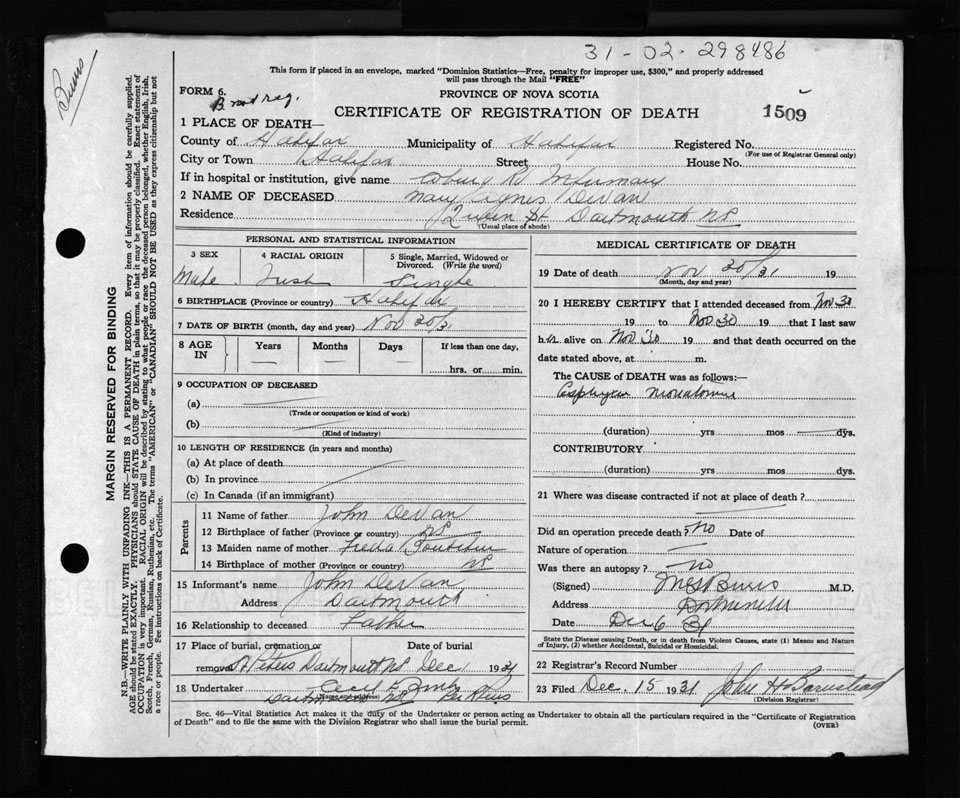 31-02-298486
Burris
This form if placed in an envelope, marked "Dominion Statistics—Free, penalty for improper use, $300," and properly addressed
will pass through the Mail "FREE"
FORM 6.
PROVINCE OF NOVA SCOTIA
CERTIFICATE OF REGISTRATION OF DEATH
1509
MARGIN RESERVED FOR BINDING
N.B.—WRITE PLAINLY WITH UNFADING INK—THIS IS A PERMANENT RECORD. Every item of information should be carefully supplied.
AGE should be stated EXACTLY. PHYSICIANS should STATE CAUSE OF DEATH in plain terms, so that it may be properly classified. Exact statement of
OCCUPATION is very important. RACIAL ORIGIN will be described by stating to what people or race the deceased person belonged, whether English, Irish,
Scotch, French, German, Russian, Ruthenian, etc. The terms "AMERICAN" or "CANADIAN" SHOULD NOT BE USED as they express citizenship but not
a race or people. See instructions on back of Certificate.
1 PLACE OF DEATH—
County of Halifax Municipality of Halifax Registered No.
(For use of Registrar General only)
City or Town Halifax Street House No.
If in hospital or institution, give name Coburg Rd Infirmary
2 NAME OF DECEASED Mary Agnes DeVan
Residence Queen St Dartmouth NS
(Usual place of abode)
PERSONAL AND STATISTICAL INFORMATION
3 SEX 4 RACIAL ORIGIN 5 Single, Married, Widowed or
Divorced. (Write the word)
Male Irish Single
6 BIRTHPLACE (Province or country) Halifax
7 DATE OF BIRTH (month, day and year) Nov 30/31
8 AGE IN Years Months Days If less than one day,
hrs. or min.
9 OCCUPATION OF DECEASED
(a)
(Trade or occupation or kind of work)
(b)
(Kind of industry)
10 LENGTH OF RESIDENCE (in years and months)
(a) At place of death
(b) In province
(c) In Canada (if an immigrant)
Parents
11 Name of father John DeVan
12 Birthplace of father (Province or country) NS
13 Maiden name of mother Freda
14 Birthplace of mother (Province or country) NS
15 Informant's name John DeVan
Address Dartmouth
16 Relationship to deceased Father
17 Place of burial, cremation or Date of burial
removal St Peters Dartmouth NS Dec 1 1931
18 Undertaker Cecil E Zink
Dartmouth NS
MEDICAL CERTIFICATE OF DEATH
19 Date of death Nov 30/31 19
(Month, day and year)
20 I HEREBY CERTIFY that I attended deceased from Nov 30
19 to Nov 30 19 that I last saw
h alive on Nov 30 19 and that death occurred on the
date stated above, at m.
The CAUSE of DEATH was as follows:—
Asphyxia Neonatorum
(duration) yrs mos dys.
CONTRIBUTORY
(duration) yrs mos dys.
21 Where was disease contracted if not at place of death?
Did an operation precede death? No Date of
Nature of operation
Was there an autopsy? No
(Signed) Burris M.D.
Address Dartmouth
Date Dec 6 31
State the Disease causing Death, or in death from Violent Causes, state (1) Means and Nature
of Injury, (2) whether Accidental, Suicidal or Homicidal.
22 Registrar's Record Number
23 Filed Dec. 15 1931 John H Barnstead
(Division Registrar)
Sec. 46—Vital Statistics Act makes it the duty of the Undertaker or person acting as Undertaker to obtain all the particulars required in the "Certificate of Registration
of Death" and to file the same with the Division Registrar who shall issue the burial permit.
(OVER)